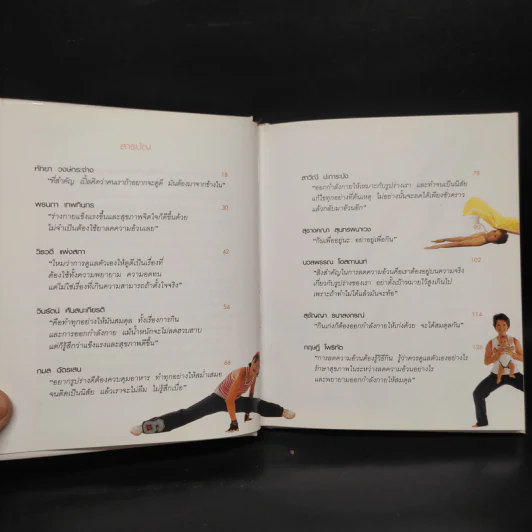 สารบัญ
หัทยา วงษ์กระจ่าง
18
"ที่สำคัญ เปิ้ลคิดว่าคนเราถ้าอยากจะดูดี มันต้องมาจากข้างใน"
พรนภา เทพทินกร
30
"ร่างกายแข็งแรงขึ้นและสุขภาพจิตใจก็ดีขึ้นด้วย
ไม่จำเป็นต้องใช้ยาลดความอ้วนเลย"
วิรวดี แผ่งสภา
42
"ใหมว่าการดูแลตัวเองให้ดูดีเป็นเรื่องที่
ต้องใช้ทั้งความพยายาม ความอดทน
แต่ไม่ใช่เรื่องที่เกินความสามารถถ้าตั้งใจจริง"
วินรัตน์ คันสนะเกียรติ
54
"คือทำทุกอย่างให้มันสมดุล ทั้งเรื่องการกิน
และการออกกำลังกาย แม้น้ำหนักจะไม่ลดฮวบฮาบ
แต่ก็รู้สึกว่าแข็งแรงและสุขภาพดีขึ้น"
กมล ฉัตรเสน
66
"อยากรูปร่างดีต้องควบคุมอาหาร ทำทุกอย่างให้สม่ำเสมอ
จนติดเป็นนิสัย แล้วเราจะไม่หิว ไม่รู้สึกเบื่อ"
สาวิณี ปะการะนัง
79
"ออกกำลังกายให้เหมาะกับรูปร่างเรา และทำจนเป็นนิสัย
แก้ไขทุกอย่างที่ต้นเหตุ ไม่อย่างนั้นจะลดได้เพียงชั่วคราว
แล้วกลับมาอ้วนอีก"
สุรางคณา สุนทรพนาเวช
"กินเพื่ออยู่นะ อย่าอยู่เพื่อกิน"
นวลพรรณ โอสถานนท์
102
"สิ่งสำคัญในการลดความอ้วนคือเราต้องอยู่บนความจริง
เกี่ยวกับรูปร่างของเรา อย่าตั้งเป้าหมายไว้สูงเกินไป
เพราะถ้าทำไม่ได้แล้วมันจะท้อ"
สุธัญญา ธนาลงกรณ์
114
"กินเก่งก็ต้องออกกำลังกายให้เก่งด้วย จะได้สมดุลกัน"
กฤษฎี โพธิทัต
126
"การลดความอ้วนต้องรู้วิธีกิน รู้ว่าควรดูแลตัวเองอย่างไร
รักษาสุขภาพในระหว่างลดความอ้วนอย่างไร
และพยายามออกกำลังกายให้สมดุล"